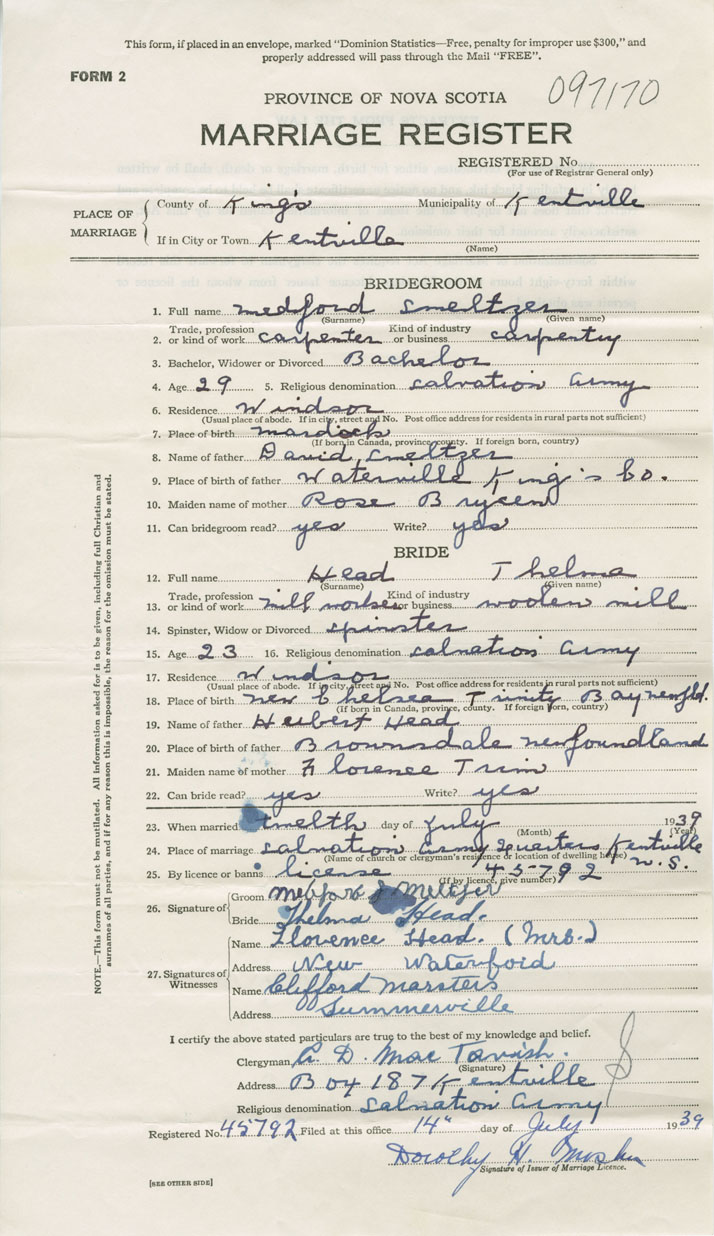 This form, if placed in an envelope, marked "Dominion Statistics—Free, penalty for improper use $300," and
properly addressed will pass through the Mail "FREE".
FORM 2
097170
PROVINCE OF NOVA SCOTIA
MARRIAGE REGISTER
REGISTERED No.
(For use of Registrar General only)
PLACE OF MARRIAGE
County of King's Municipality of Kentville
If in City or Town Kentville
(Name)
BRIDEGROOM
1. Full name medford Smeltzer
(Surname) (Given name)
2. Trade, profession or kind of work carpenter Kind of industry or business carpentry
3. Bachelor, Widower or Divorced Bachelor
4. Age 29 5. Religious denomination salvation Army
6. Residence Windsor
(Usual place of abode. If in city, street and No. Post office address for residents in rural parts not sufficient)
7. Place of birth mardock
(If born in Canada, province, county. If foreign born, country)
8. Name of father David Smeltzer
9. Place of birth of father Waterville King's Co.
10. Maiden name of mother Rose Brycen
11. Can bridegroom read? yes Write? yes
BRIDE
12. Full name Head Thelma
(Surname) (Given name)
13. Trade, profession or kind of work mill worker Kind of industry or business woolen mill
14. Spinster, Widow or Divorced spinster
15. Age 23 16. Religious denomination salnation Army
17. Residence Windsor
(Usual place of abode. If in city, street and No. Post office address for residents in rural parts not sufficient)
18. Place of birth new Chelsea Trinity Bay newfld.
(If born in Canada, province, county. If foreign born, country)
19. Name of father Herbert Head
20. Place of birth of father Brownsdale newfoundland
21. Maiden name of mother Florence Trim
22. Can bride read? yes Write? yes
23. When married twelth day of July 1939
(Month) (Year)
24. Place of marriage salnation Army Quarters Kentville
(Name of church or clergyman's residence or location of dwelling house) N.S.
25. By licence or banns license 45792
(If by licence, give number)
26. Signature of
Groom Medford Smeltzer
Bride Thelma Head.
27. Signatures of Witnesses
Name Florence Head. (Mrs.)
Address New Waterford
Name Clifford Marsters
Address Summerville
I certify the above stated particulars are true to the best of my knowledge and belief.
Clergyman A. D. MacTavish.
(Signature)
Address Box 187 Kentville
Religious denomination Salnation Army
Registered No. 45792 Filed at this office 14" day of July 1939
Dorothy H.
Signature of Issuer of Marriage Licence.
[SEE OTHER SIDE]
NOTE.—This form must not be mutilated. All information asked for is to be given, including full Christian and
surnames of all parties, and if for any reason this is impossible, the reason for the omission must be stated.